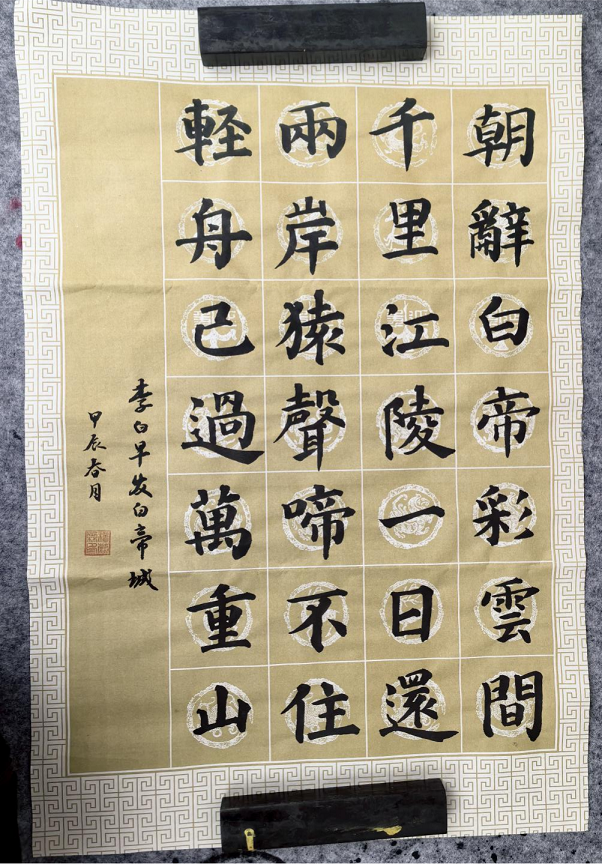 朝辭白帝彩雲間
千里江陵一日還
兩岸猿聲啼不住
輕舟已過萬重山
李白早发白帝城
甲辰春月